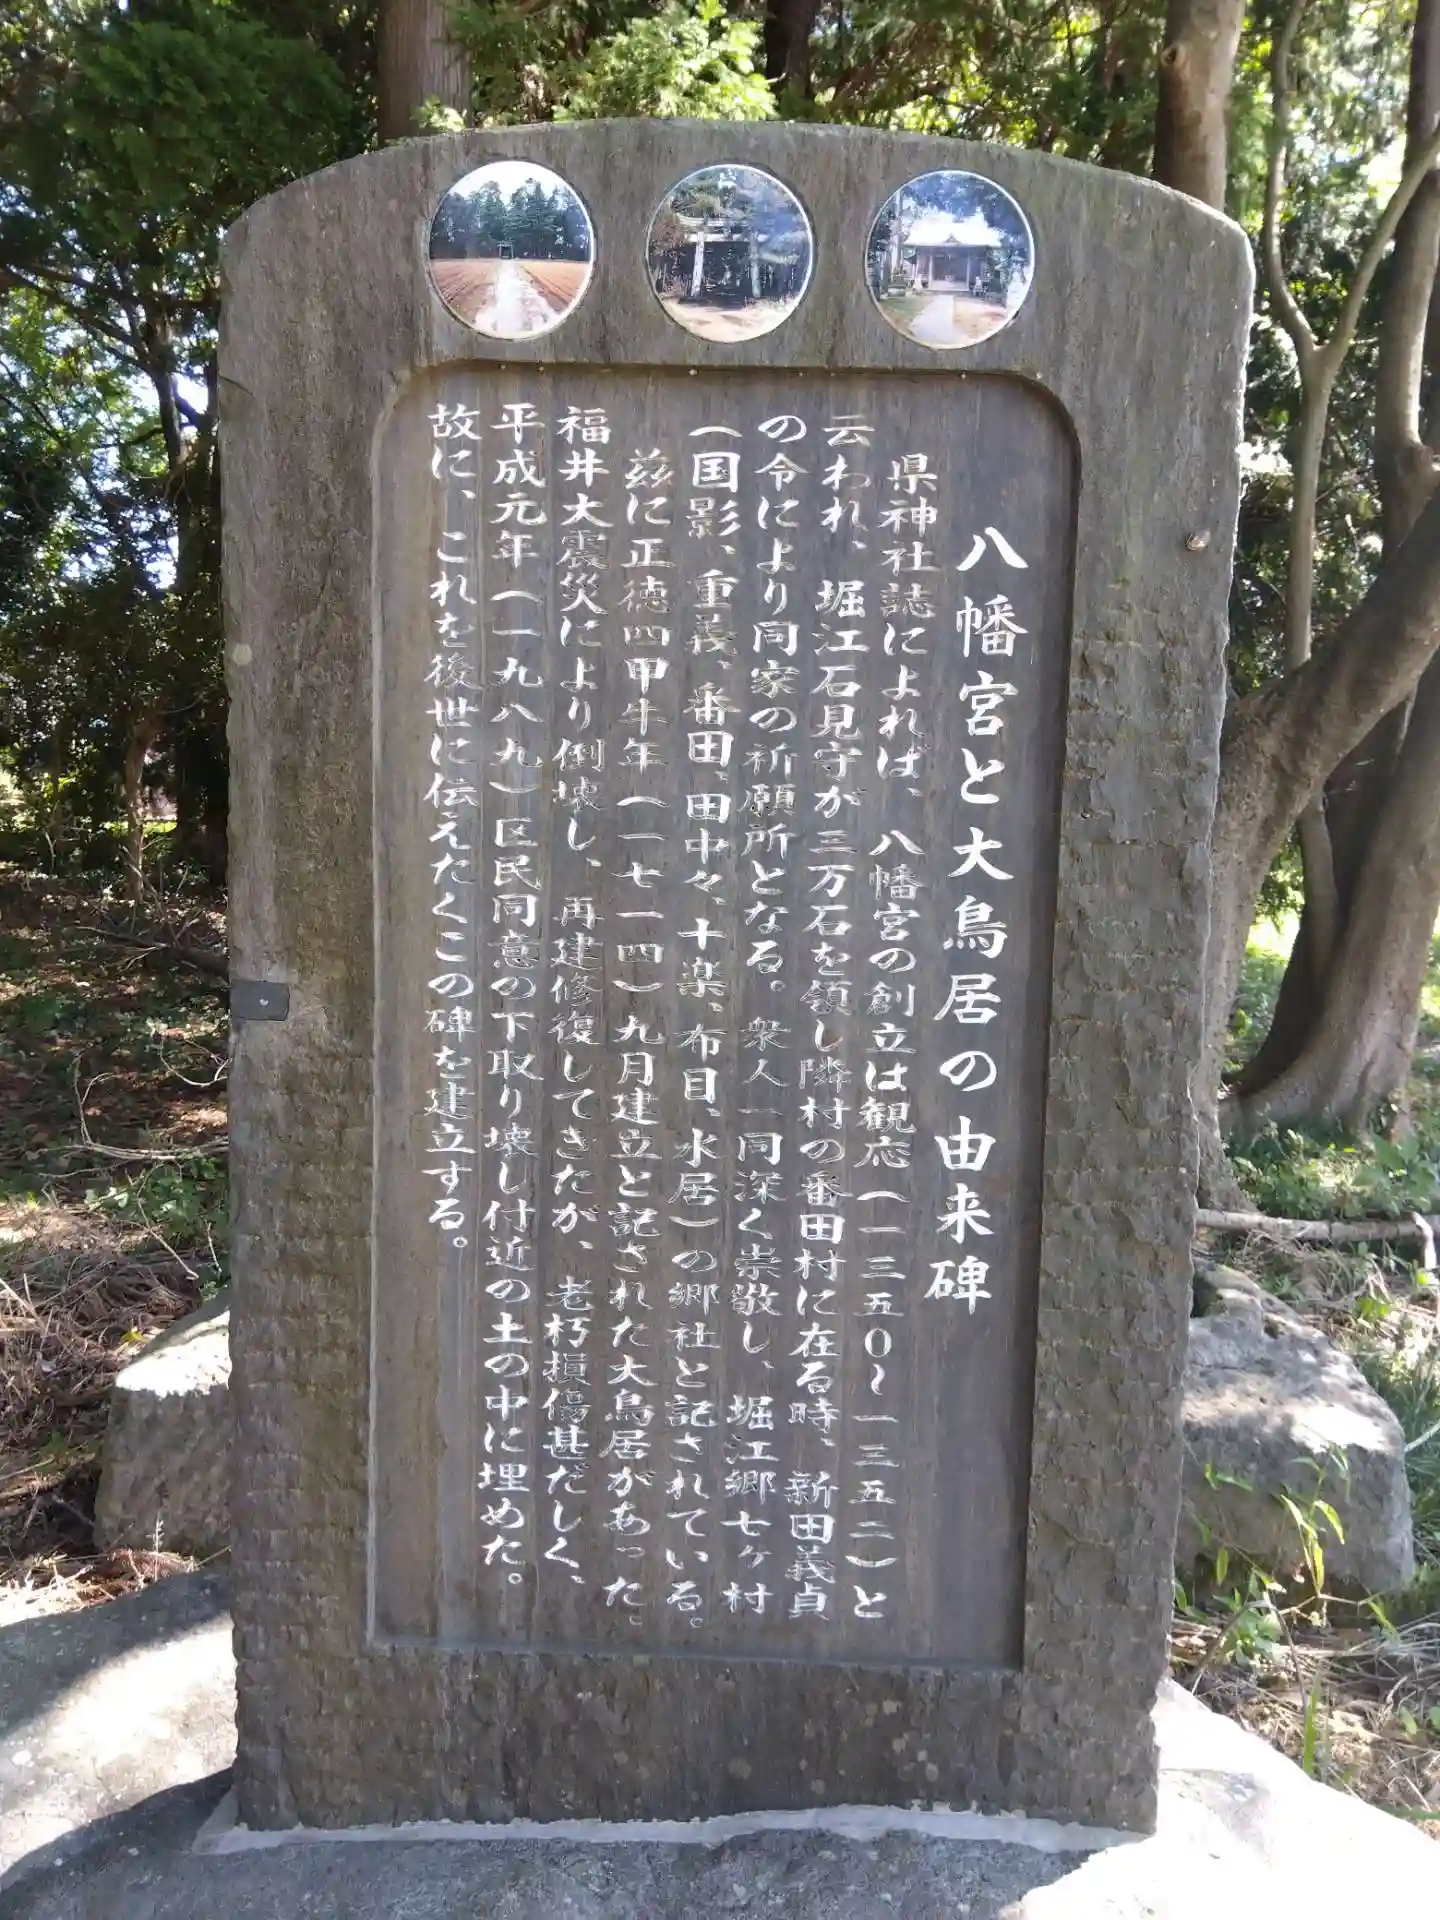 八幡宮と大鳥居の由来碑
県神社誌によれば、八幡宮の創立は観応（一三五〇〜一三五二）と
云われ、堀江石見守が三万石を領し隣村の番田村に在る時、新田義貞
の令により同家の祈願所となる。衆人一同深く崇敬し、堀江郷七ヶ村
（国影、重義、番田、田中々、十楽、布目、水居）の郷社と記されている。
茲に正徳四甲午年（一七一四）九月建立と記された大鳥居があった。
福井大震災により倒壊し、再建修復してきたが、老朽損傷甚だしく、
平成元年（一九八九）区民同意の下取り壊し付近の土の中に埋めた。
故に、これを後世に伝えたくこの碑を建立する。